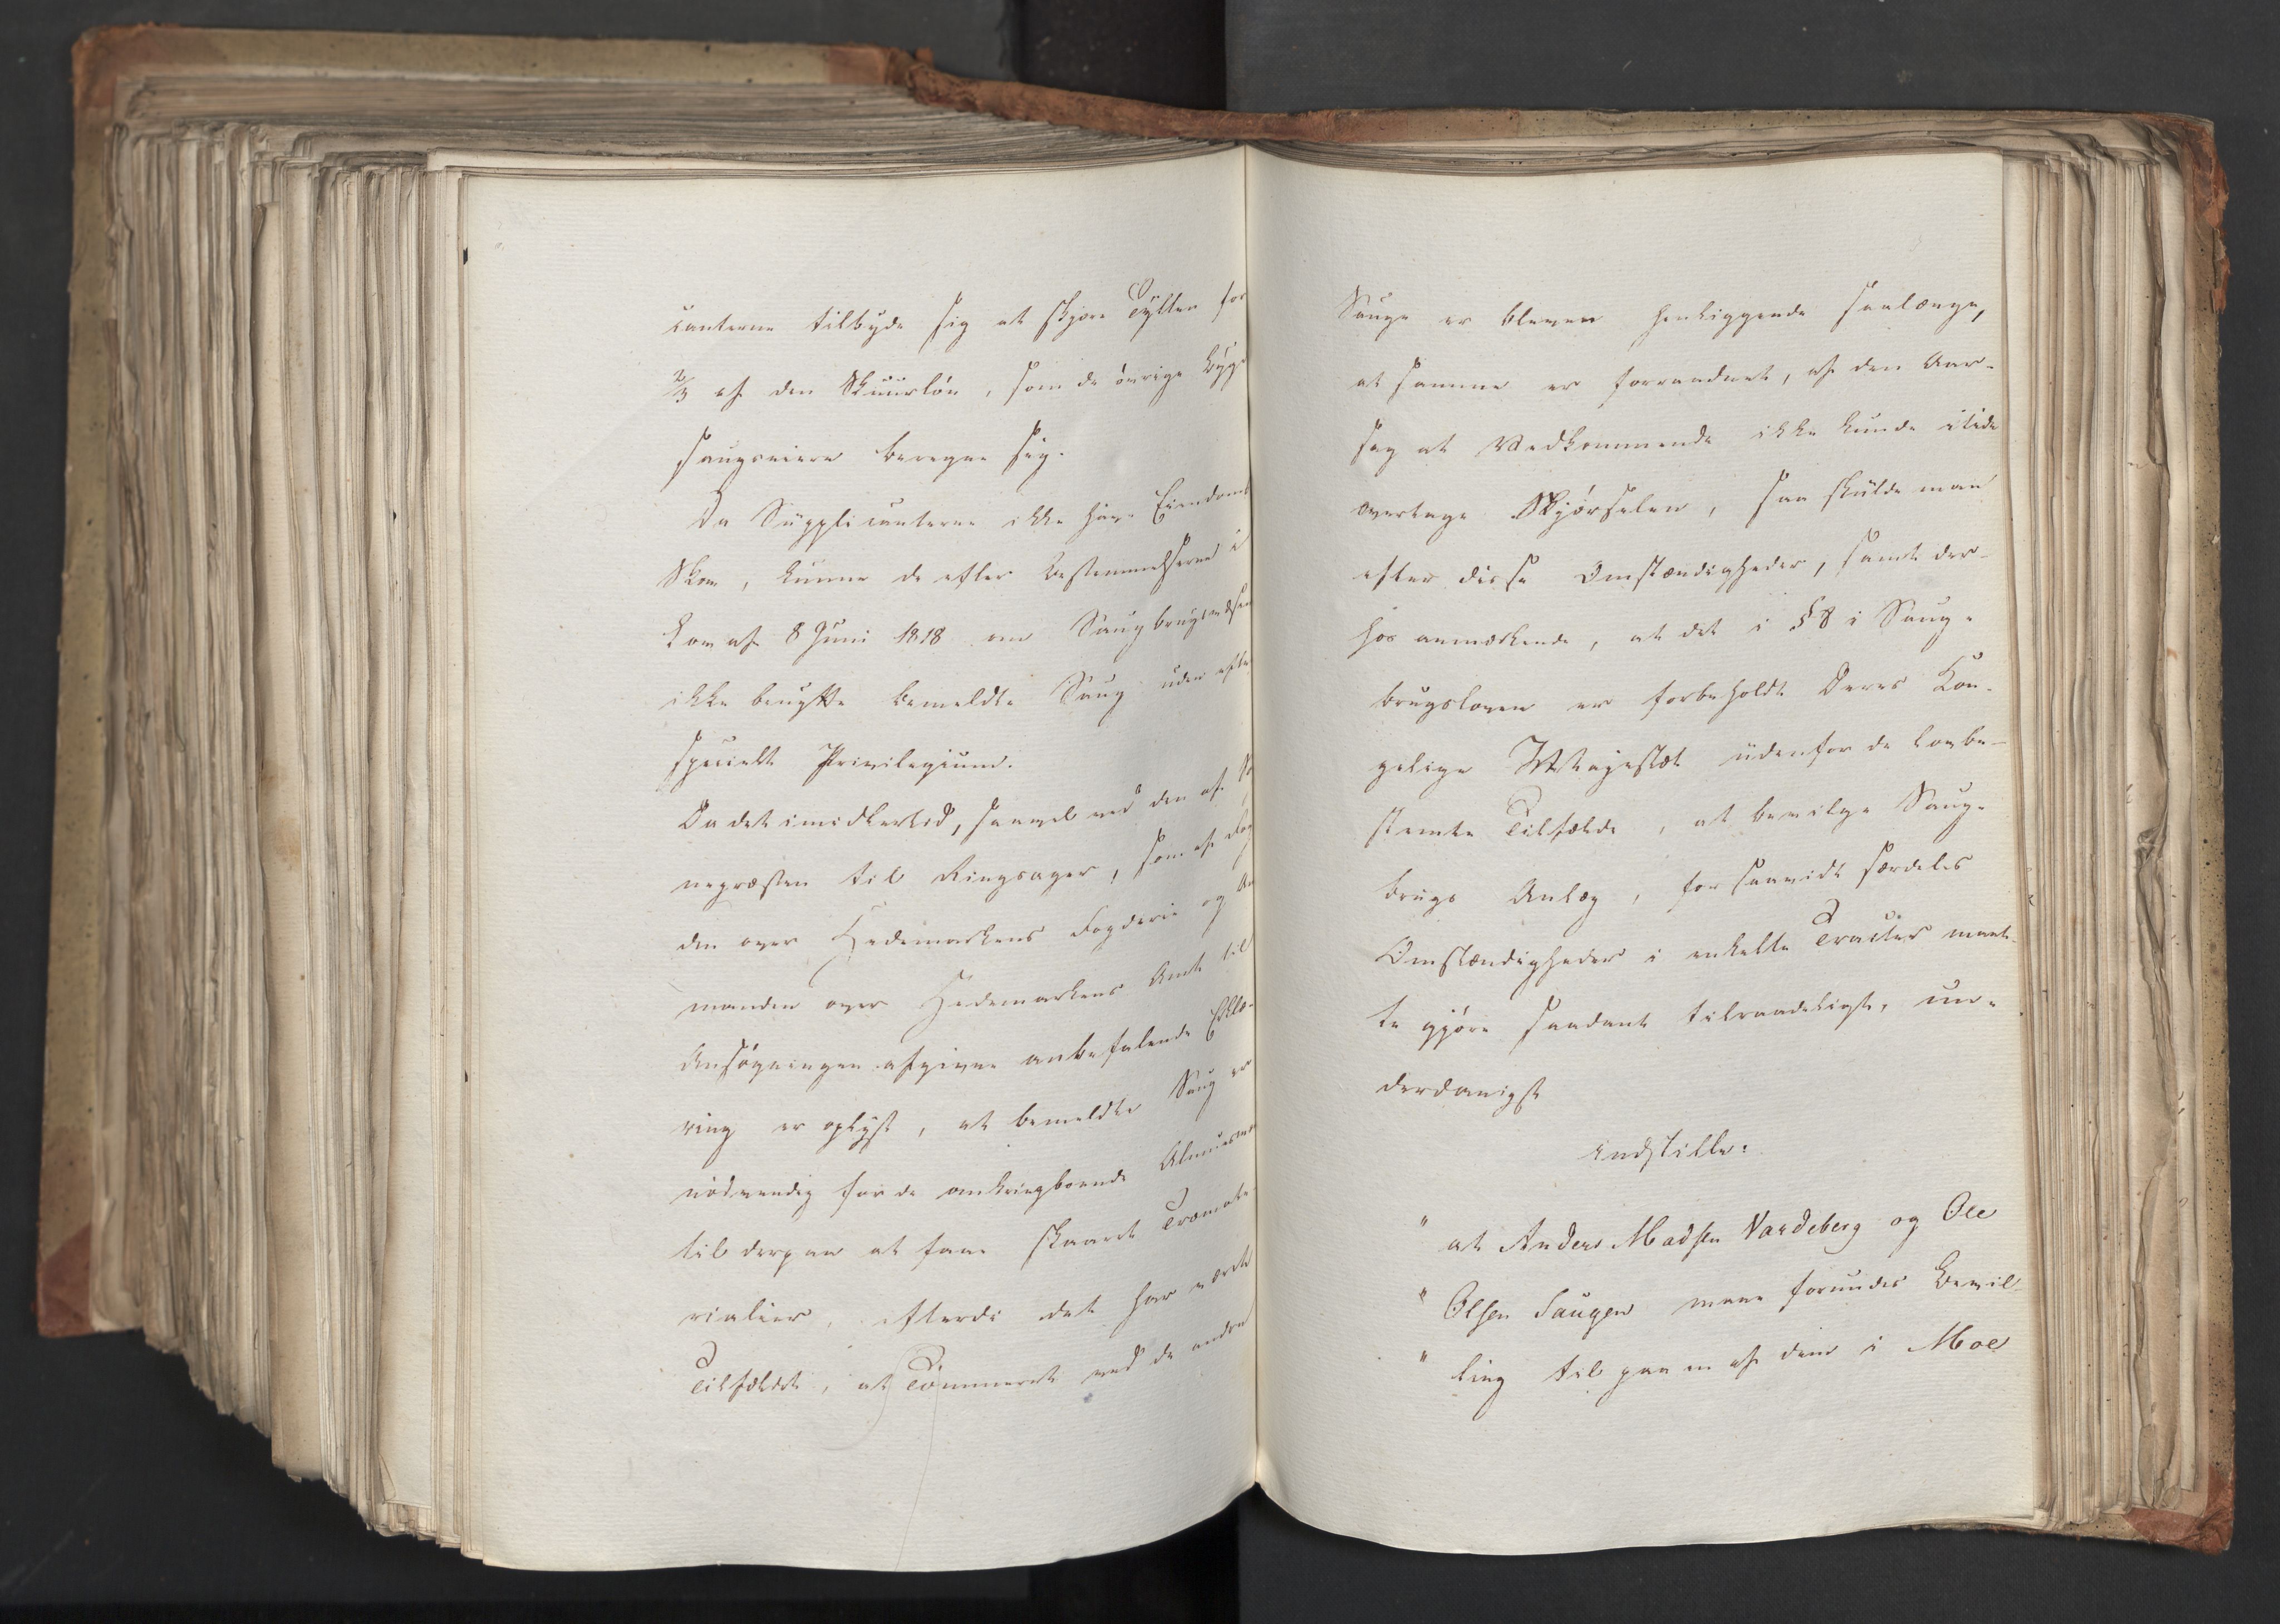 canterne tilbyde sig at skjære Tylten for
2/3 af den Skuurløn, som de øvrige Byg-
saugseiere beregne sig.
Da Supplicanterne ikke have Eiendoms
Skov, kunne de efter Bestemmelserne i
Lov af 8 Juni 1818 om Saugbrugsvæsen
ikke benytte bemeldte Saug uden efter
specielt Privilegium.
Da det imidlertid, saavel ved den af
nepræsten til Ringsager, som af Fog
den over Hedemarkens Fogderie og Am
manden over Hedemarkens Amt til
Ansøgningen afgivne anbefalende Erklæ-
ring er oplyst, at bemeldte Saug er
nødvendig for de omkringboende Almuesmæ
til derpaa at faae skaaret Træmate-
rialier, efterdi det har været
Tilfældet, at Tømmeret ved de andre
Sauge er bleven henliggende saalænge,
at samme er forraadnet, af den Aar-
sag at Vedkommende ikke kunde itide
overtage Skjørselen, saa skulde man
efter disse Omstændigheder, samt der-
hos anmærkende, at det i § 8 i Saug-
brugsloven er forbeholdt Deres Kon-
gelige Majestæt udenfor de lovbe-
stemte Tilfælde, at bevilge Saug-
brugs Anlæg, forsaavidt særdeles
Omstændigheder i enkelte Tracter maat-
te gjøre saadant tilraadeligt, un-
derdanigst
indstille:
" at Anders Madsen Vardeberg og Ole
" Olsen Saugen maae forundes Bevil-
" ling til paa en af dem i Moe